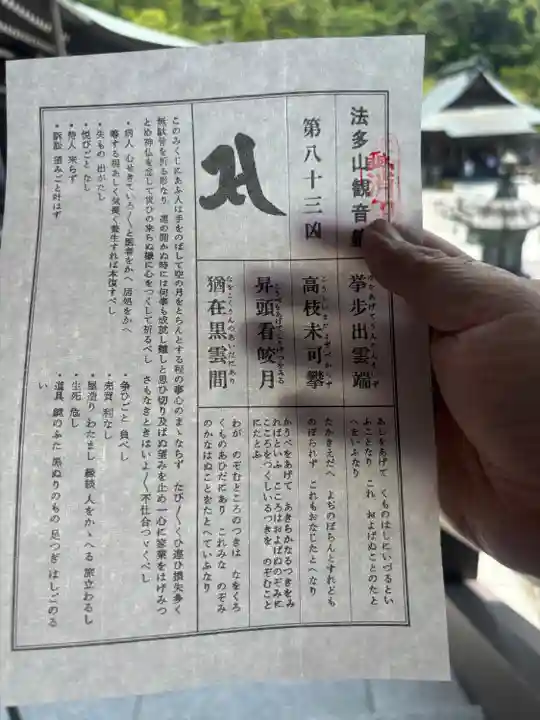 法多山観音
第八十三凶
挙歩出雲端
あしをあげて くものはしにいづるとい
ふことなり これ およばぬことのたと
へをいふなり
高枝未可攀
たかきえだへ よぢのぼらんとすれども
のぼられず これもおなじたとへなり
昇頭看皎月
かうべをあげて あきらかなるつきをみ
ればといふ こころはおよばぬのぞみに
こころをつくしいるつきを のぞむこと
にたとふ
猶在黒雲間
なをこくうんのあいだにあり
わが のぞむところのつきは なをくろ
くものあひだにあり これみな のぞみ
のかなはぬことをたとへていふなり
このみくじにあふ人は手をのばして空の月をとらんとする程の事心のまゝならず たび〳〵くひ違ひ損失多く
無駄骨を折る形なり 運の開かぬ時には何事も成就し難しと思ひ切り及ばぬ望みを止め一心に家業をはげみつ
とめ神仏を念じて災ひの来らぬ様に心をつくして祈るべし さもなきときはいよ〳〵不仕合つゞくべし
・病人 心せきていろ〳〵と医者をかへ 居処をかへ
等する程あしく気長く養生すれば本復すべし
・失もの 出がたし
・悦びごと なし
・待人 来らず
・訴訟 望みごと叶はず
・争ひごと 負べし
・売買 利なし
・屋造り わたまし 縁談 人をかゝへる 旅立わるし
・生死 危し
・道具 鏡のふた 黒ぬりのもの 足つぎ はしごのる
い